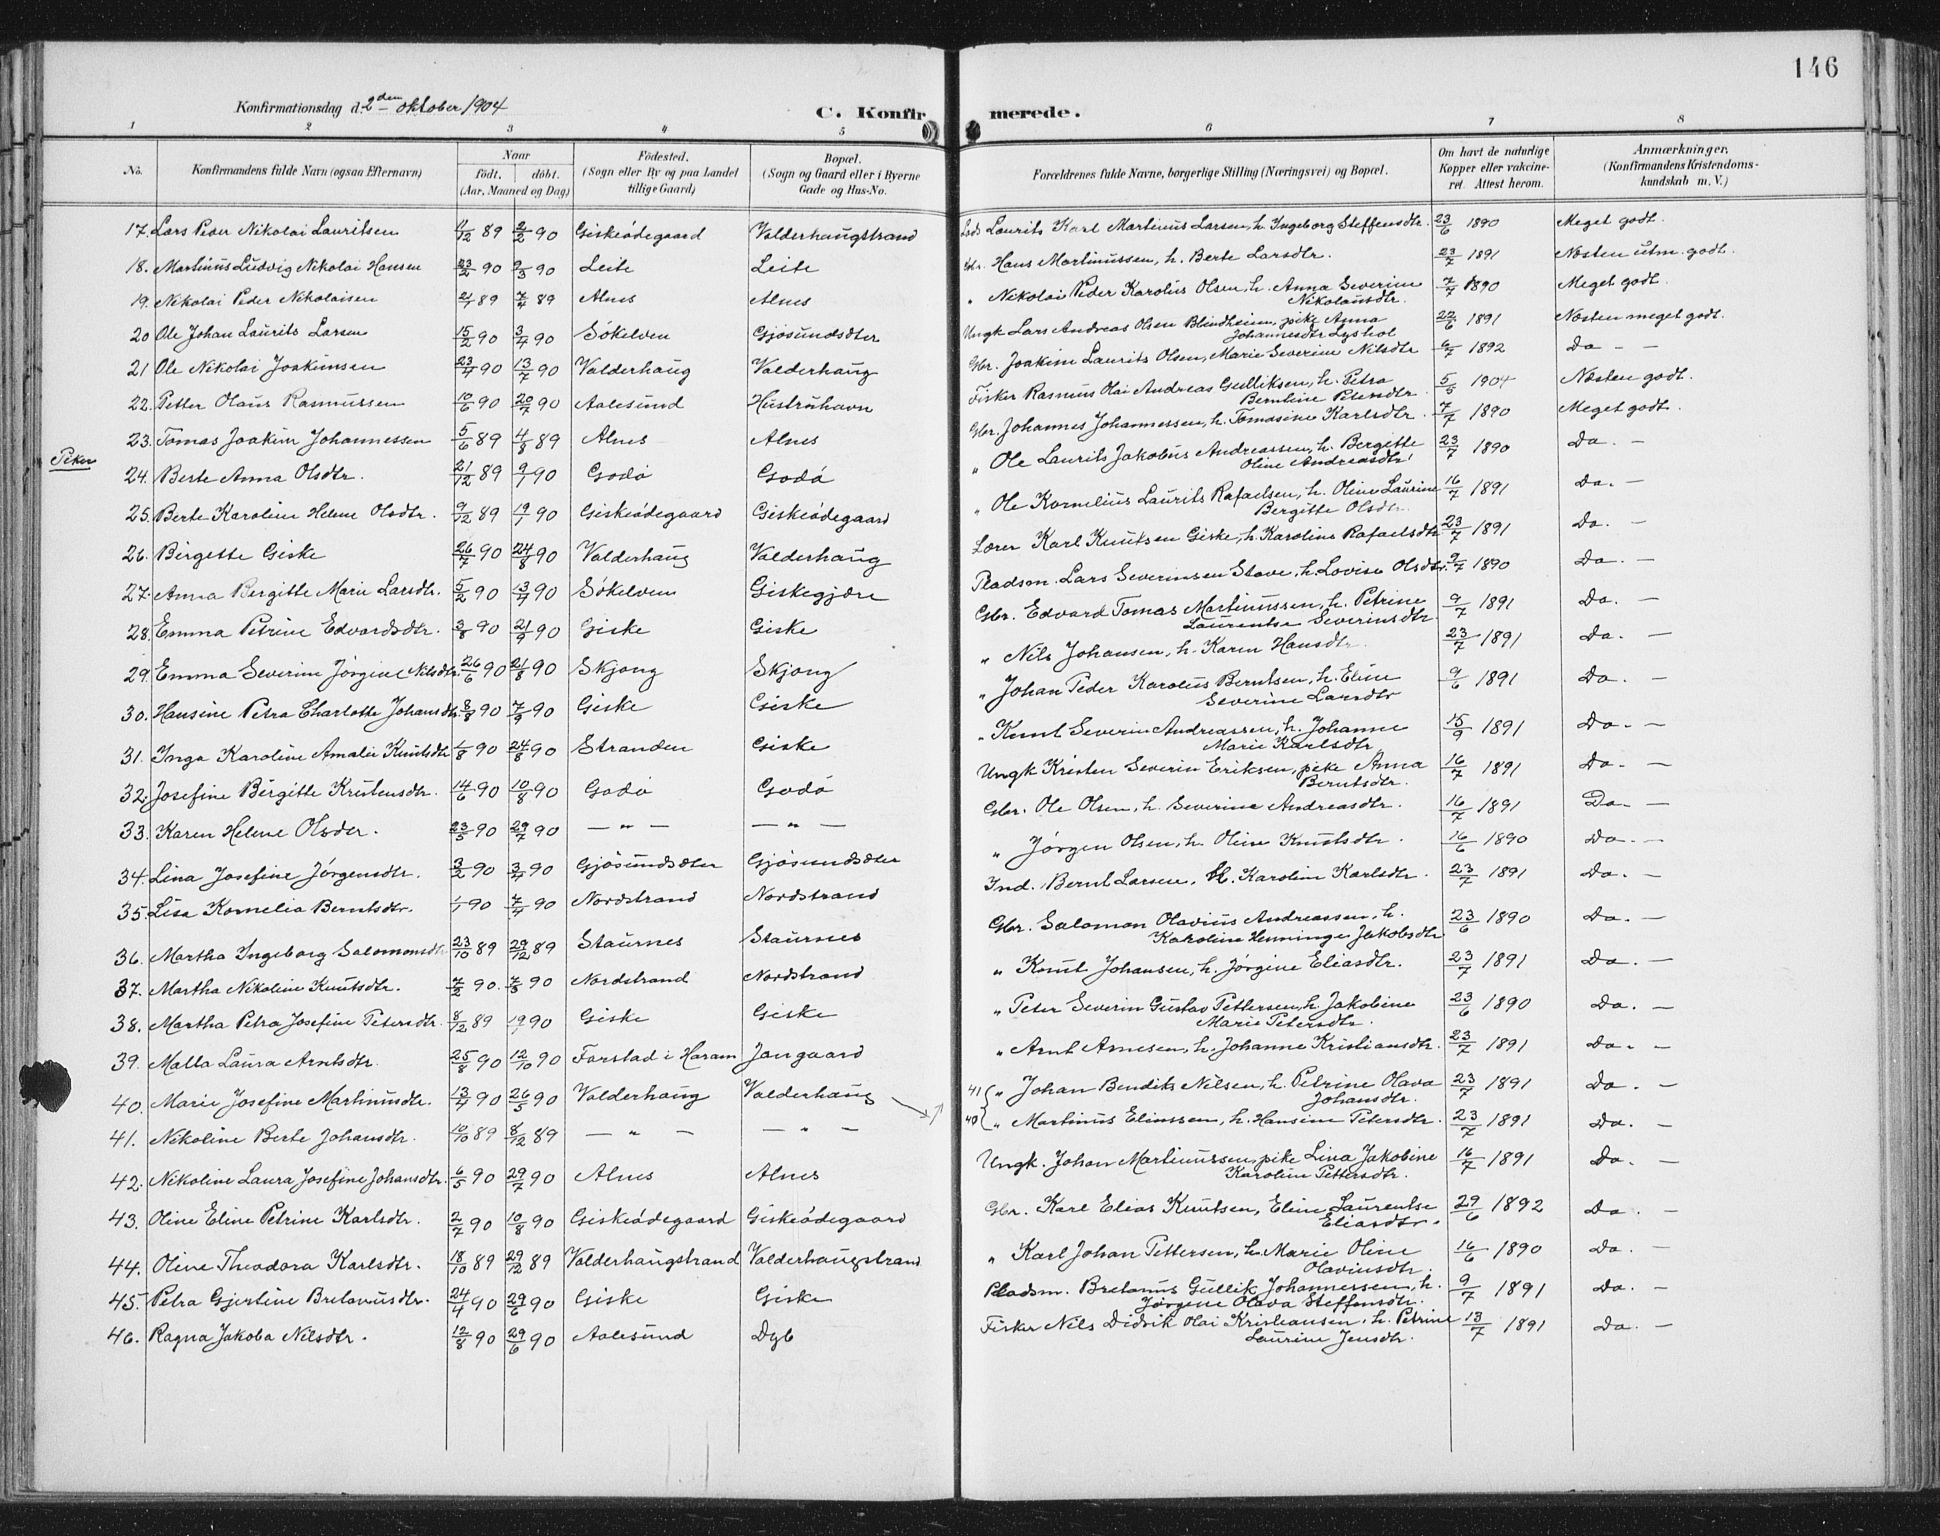 146
Konfirmationsdag d. 2den oktober 1904
C. Konfirmerede.
1 2 3 4 5 6 7 8
No. Konfirmandens fulde Navn (ogsaa Efternavn) Naar födt. döbt. (Aar, Maaned og Dag) Födested. (Sogn eller By og paa Landet tillige Gaard) Bopæl. (Sogn og Gaard eller i Byerne Gade og Hus-No. Forældrenes fulde Navne, borgerlige Stilling (Næringsvei) og Bopæl. Om havt de naturlige Kopper eller vakcineret. Attest herom. Anmærkninger. (Konfirmandens Kristendomskundskab m. V.)
17. Lars Peder Nikolai Lauritsen 4/12 89 2/2 90 Giskeødegaard Valderhaugstrand Laurits Karl Martinus Larsen, h. Ingeborg Steffensdtr. 23/6 1890 Meget godt.
18. Martinus Ludvig Nikolai Hansen 23/2 90 9/3 90 Leite Leite Gbr. Hans Martinussen, h. Berte Larsdtr. 23/7 1891 Næsten utm. godt.
19. Nikolai Peder Nikolaisen 2/1 89 7/4 89 Alnes Alnes " Nikolai Peder Karolus Olsen, h. Anna Severine Nikolausdtr. 7/7 1890 Meget godt.
20 Ole Johan Laurits Larsen 15/2 90 3/4 90 Sökelven Gjösundsæter Ungk Lars Andreas Olsen Blindheim, pike Anna Johannesdtr Lyshol 22/6 1891 Næsten meget godt.
21 Ole Nikolai Joakimsen 23/4 90 13/7 90 Valderhaug Valderhaug Gbr. Joakim Laurits Olsen, Marie Severine Nilsdtr 6/7 1892 Do - -
22. Petter Olaus Rasmussen 10/6 90 20/7 90 Aalesund Hustruhavn Fisker Rasmus Olai Andreas Gulliksen, h. Petra Berntine Petersdtr 5/5 1904 Næsten godt.
23. Tomas Joakim Johannessen 5/6 89 4/8 89 Alnes Alnes Gbr. Johannes Johannessen, h. Tomasine Karlsdtr. 7/7 1890 Meget godt.
Piker
24. Berte Anna Olsdtr. 21/12 89 9/1 90 Godö Godö " Ole Laurits Jakobus Andreassen, h. Bergitte Oline Andreasdtr 23/7 1890 Do. -
25. Berte Karoline Helene Olsdtr. 9/12 89 19/1 90 Giskeödegaard Giskeödegaard " Ole Kornelius Laurits Rafaelsen, h. Oline Laurine Bergitte Olsdtr. 16/7 1891 Do. -
26. Birgette Giske 26/7 90 24/8 90 Valderhaug Valderhaug Lærer Karl Knutsen Giske, h. Karoline Rafaelsdtr 23/7 1891 Do. -
27. Anna Bergitte Marie Larsdtr. 5/2 90 13/4 90 Sökelven Giskegjære Pladsm. Lars Severinsen Stave, h. Lovise Olsdtr. 9/7 1890 Do. -
28. Emma Petrine Edvardsdtr. 3/8 90 21/9 90 Giske Giske Gbr. Edvard Tomas Martinussen, h. Petrine Laurentse Severinsdtr 9/7 1891 Do. -
29. Emma Severine Jørgine Nilsdtr. 26/6 90 21/8 90 Skjong Skjong " Nils Johansen, h. Karen Hansdtr. 23/7 1891 Do. -
30. Hansine Petra Charlotte Johansdtr. 8/8 90 7/9 90 Giske Giske " Johan Peder Karolus Berntsen, h. Eline Severine Larsdtr 9/6 1891 Do. -
31. Inga Karoline Amalie Knutsdtr 1/8 90 24/8 90 Stranden Giske " Knut Severin Andreassen, h. Johanne Marie Karlsdtr 15/9 1891 Do. -
32. Josefine Birgitte Kristensdtr. 14/6 90 10/8 90 Godö Godö Ungk Kristen Severin Eriksen, pike Anna Berntsdtr. 16/7 1891 Do. -
33. Karen Helene Olsdtr. 23/5 90 29/7 90 - " - - " - Gbr. Ole Olsen, h. Severine Andreasdtr. 16/7 1891 Do. -
34. Lina Josefine Jörgensdtr. 3/2 90 3/4 90 Gjösundsæter Gjösundsæter " Jörgen Olsen, h. Oline Knutsdtr. 16/6 1890 Do. -
35. Lisa Kornelia Berntsdtr. 1/1 90 7/4 90 Nordstrand Nordstrand Ind. Bernt Larsen, h. Karoline Karlsdtr. 23/7 1891 Do. -
36. Martha Ingeborg Salomonsdtr 23/10 89 29/12 89 Staurnes Staurnes Gbr. Salomon Olavius Andreassen, h. Karoline Henninge Jakobsdtr 23/6 1890 Do. -
37. Martha Nikoline Knutsdtr. 7/2 90. 7/5 90 Nordstrand Nordstrand " Knut Johansen, h. Jörgine Eliasdtr. 23/7 1891 Do. -
38. Martha Petra Josefine Petersdtr. 8/12 89 19/1 90 Giske Giske " Peter Severin Gustav Pettersen, h. Jakobine Marie Petersdtr. 23/6 1890 Do. -
39. Malla Laura Arntsdtr. 25/8 90 12/10 90 Farstad i Haram Jangaard " Arnt Arnesen, h. Johanne Kristiansdtr. 23/7 1891 Do. -
40. Marie Josefine Martinusdtr. 13/4 90 26/5 90 Valderhaug Valderhaug 41 " Johan Bendik Nilsen, h. Petrine Olava Johansdtr. 23/7 1891 Do. -
41. Nikoline Berte Johansdtr. 10/10 89 8/12 89 - " - - " - 40 " Martinus Elinssen, h. Hansine Petersdtr. 23/7 1891 Do. -
42. Nikoline Laura Josefine Johansdtr. 6/5 90 29/7 90 Alnes Alnes Ungk. Johan Martinussen, pike Lina Jakobine Karoline Pettersdtr. 16/7 1891 Do. -
43. Oline Eline Petrine Karlsdtr. 2/7 90 10/8 90 Giskeödegaard Giskeödegaard Gbr. Karl Elias Knutsen, Eline Laurentse Eliasdtr. 29/6 1892 Do. -
44. Oline Theodora Karlsdtr. 18/10 89 29/12 89 Valderhaugstrand Valderhaugstrand " Karl Johan Pettersen, h. Marie Oline Olavinsdtr. 16/6 1890 Do. -
45. Petra Gjertine Bretanusdtr. 24/4 90 29/6 90 Giske Giske Pladsm. Bretanus Gullik Johannessen, h. Jørgine Olava Steffensdtr. 9/7 1891 Do. -
46. Ragna Jakoba Nilsdtr. 12/8 90 29/6 90 Aalesund Dyb Fisker Nils Didrik Olai Kristiansen, h. Petrine Laurine Jensdtr. 13/7 1891 Do. -